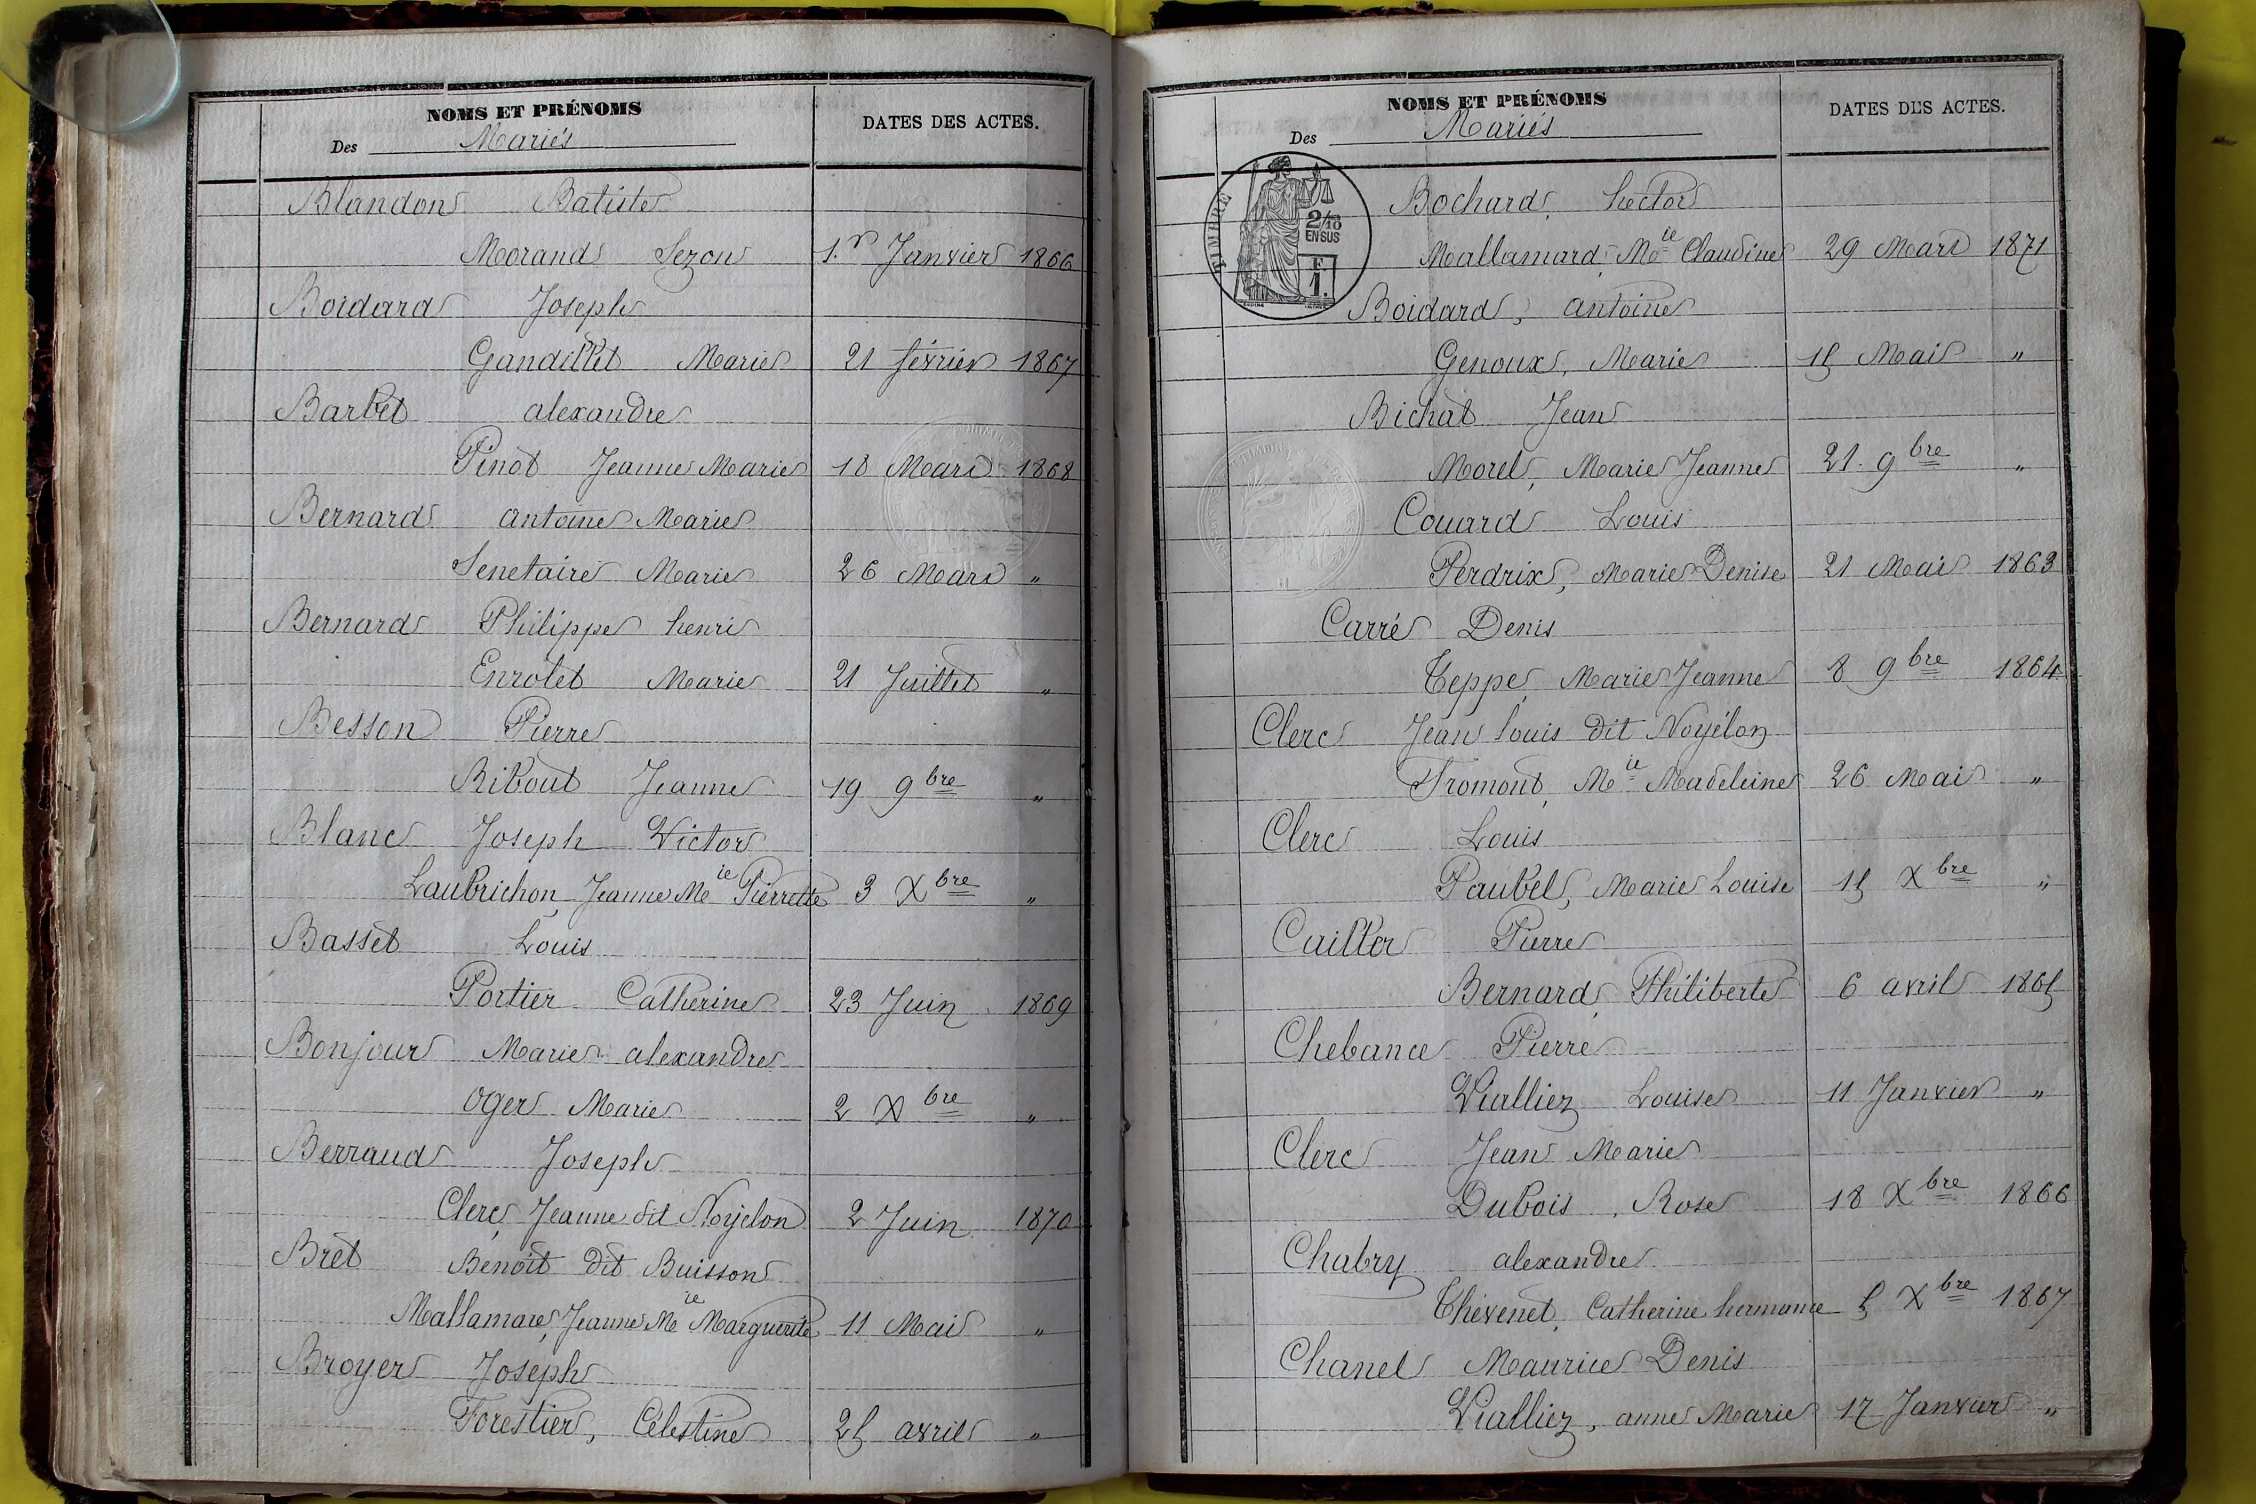 NOMS ET PRÉNOMS
Des Mariés
DATES DES ACTES.
Blandon Batiste
Morand Sezon 1.r Janvier 1866
Boidard Joseph
Gandillet Marie 21 février 1867
Barbet alexandre
Pinot Jeanne Marie 18 Mars 1868
Bernard antoine Marie
Senetaire Marie 26 Mars "
Bernard Philippe henri
Enrolet Marie 21 Juillet "
Besson Pierre
Ribout Jeanne 19 9bre "
Blanc Joseph Victor
Laubrichon, Jeanne Mie Pierrette 3 Xbre "
Basset Louis
Portier Catherine 23 Juin 1869
Bonjour Marie alexandre
Oger Marie 2 Xbre "
Berraud Joseph
Clerc, Jeanne dit Noyelon 2 Juin 1870
Bret Benoît dit Buisson
Mallamare, Jeanne Mie Marguerite 11 Mai "
Broyer Joseph
Forestier, Célestine 25 avril "
NOMS ET PRÉNOMS
Des Mariés
DATES DES ACTES.
TIMBRE
2/10
EN SUS
F
1.
Bochard, hector
Mallamard, Mie Claudine 29 Mars 1871
Boidard, antoine
Genoux, Marie 15 Mai "
Bichat Jean
Morel, Marie Jeanne 21. 9bre "
Couard Louis
Perdrix, Marie Denise 21 Mai 1863
Carré Denis
Teppe, Marie Jeanne 8 9bre 1864
Clerc Jean louis dit Noyélon
Fromont, Mie Madeleine 26 Mai "
Clerc Louis
Paubel, Marie Louise 15 Xbre "
Cuiller Pierre
Bernard, Philiberte 6 avril 1865
Chebance Pierre
Vialliez Louise 11 Janvier "
Clerc Jean Marie
Dubois, Rose 18 Xbre 1866
Chabry alexandre
Thévenet, Catherine hermance 5 Xbre 1867
Chanel Maurice Denis
Vialliez, anne Marie 17 Janvier "